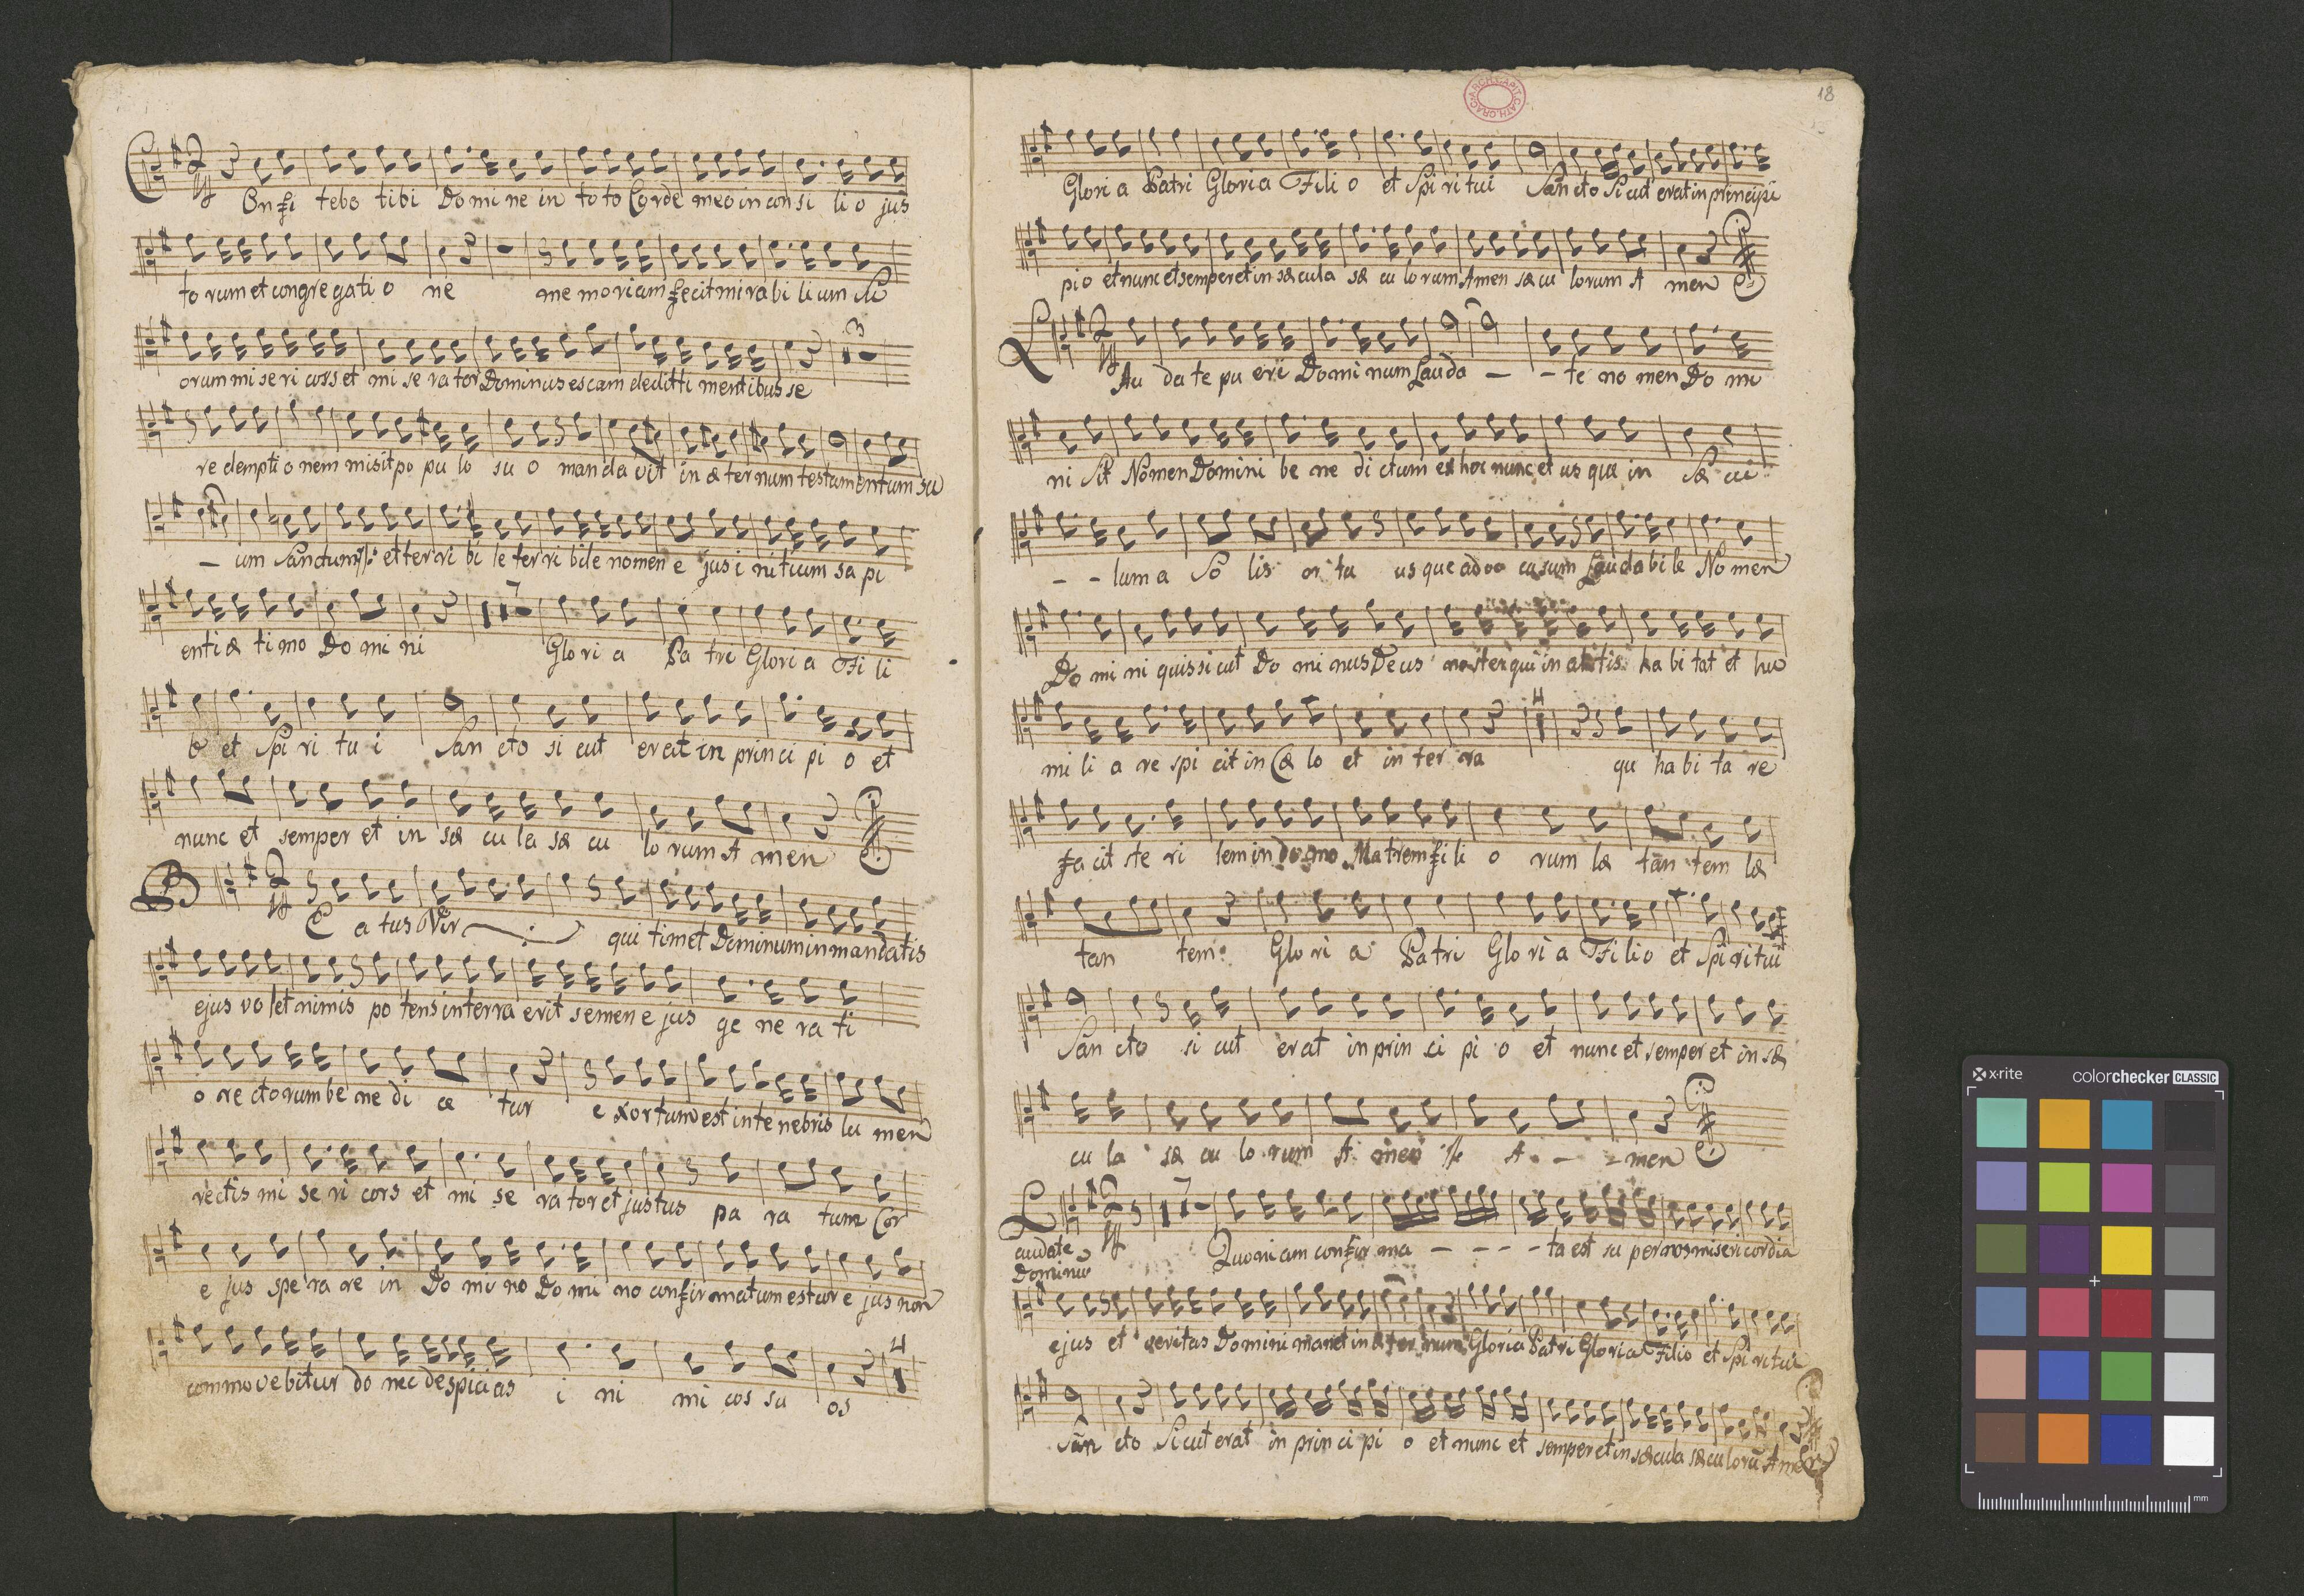 Confi tebo tibi Do mi ne in to to Corde meo in con si li o jus
to rum et congre gati o ne me mo riam fecit mi ra bi li um su
orum mi se ri cors et mi se ra tor Dominus escam dedit ti mentibus se
re dempti o nem misit po pu lo su o man da vit in æ ternum testamentum su
um Sanctum et ter ri bi le ter ri bile nomen e jus i nitium sa pi
enti æ ti mo Do mi ni Glo ri a Pa tri Glori a Fi li
o et Spi ri tu i San cto si cut erat in prin ci pi o et
nunc et semper et in sæ cu la sæ cu lo rum A men
BE a tus Vir qui timet Dominum in mandatis
ejus vo let nimis po tens in terra erit semen e jus ge ne ra ti
o re ctorum be ne di ce tur exortum est in te nebris lu men
rectis mi se ri cors et mi se ra tor et justus pa ra tum Cor
e jus spe ra re in Do mi no Do mi no confirmatum est cor e jus non
commo ve bitur do nec despicias i ni mi cos su os
18
Glori a Patri Gloria Fili o et Spi ri tui San cto Si cut erat in principi
pi o et nunc et semper et in sæ cula sæ cu lo rum Amen sæ cu lorum A men
LAu da te pu eri Do mi num Lauda - - te no men Do mi
ni Sit Nomen Domini be ne di ctum ex hoc nunc et us que in Sæ cu
- - lum a So lis or tu us que ad oc casum Laudabi le No men
Do mi ni quis sicut Do mi nus Deus noster qui in altis ha bi tat et hu
mi li a re spi cit in Cæ lo et in ter ra qu ha bi ta re
fa cit ste ri lem in domo Matrem fi li o rum læ tan tem læ
tan tem Glo ri a Patri Glo ri a Fi li o et Spi ritui
San cto si cut erat in prin ci pi o et nunc et semper et in sæ
cu la sæ cu lo rum A men A - - men
Laudate Quoniam confir ma - - - - ta est su per nos misericordia
Dominu
ejus et veritas Domini manet in æ ter num Gloria Patri Gloria Filio et Spi ritui
San cto Sicut erat in prin ci pi o et nunc et semper et in sæcula sæcu lorū Amen